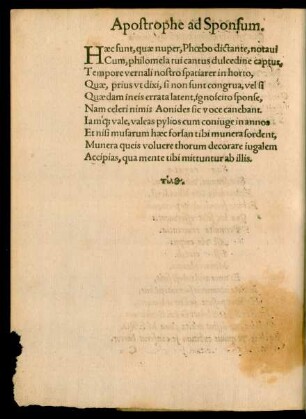 Apostrophe ad Sponsum.
Hæc sunt, quæ nuper, Phœbo dictante, notaui
Cum, philomela tui cantus dulcedine captus,
Tempore vernali nostro spatiarer in horto,
Quæ, prius vt dixi, si non sunt congrua, vel si
Quædam ineis errata latent, ignoscito sponse,
Nam celeri nimis Aonides sic voce canebant.
Iamq; vale, valeas pylios cum coniuge in annos
Et nisi musarum hæc forsan tibi munera sordent,
Munera queis voluere thorum decorare iugalem
Accipias, qua mente tibi mittuntur ab illis.
τέλος.